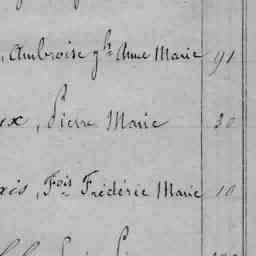 , Ambroise gh Anne Marie 91
ex, Pierre Marie 30
xis, Fois Frédéric Marie 10